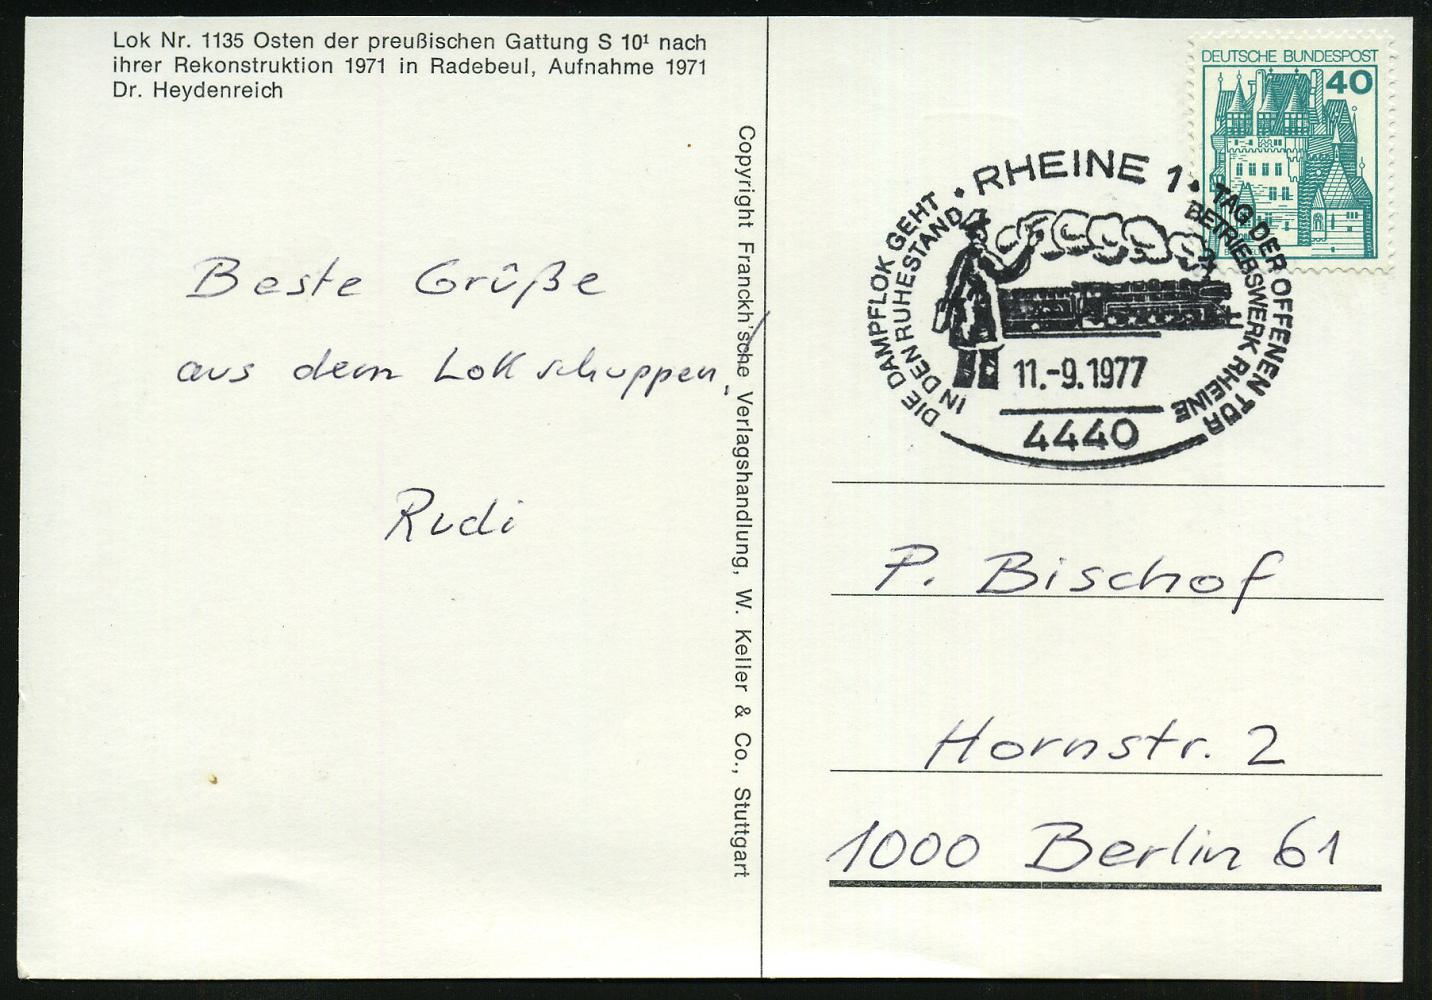 Lok Nr. 1135 Osten der preußischen Gattung S 10¹ nach
ihrer Rekonstruktion 1971 in Radebeul, Aufnahme 1971
Dr. Heydenreich
Beste Grüße
aus dem Lokschuppen,
Rudi
Copyright Franckh'sche Verlagshandlung, W. Keller & Co., Stuttgart
DEUTSCHE BUNDESPOST
40
• RHEINE 1 •
DIE DAMPFLOK GEHT
IN DEN RUHESTAND
TAG DER OFFENEN TÜR
BETRIEBSWERK RHEINE
11.-9.1977
4440
P. Bischof
Hornstr. 2
1000 Berlin 61